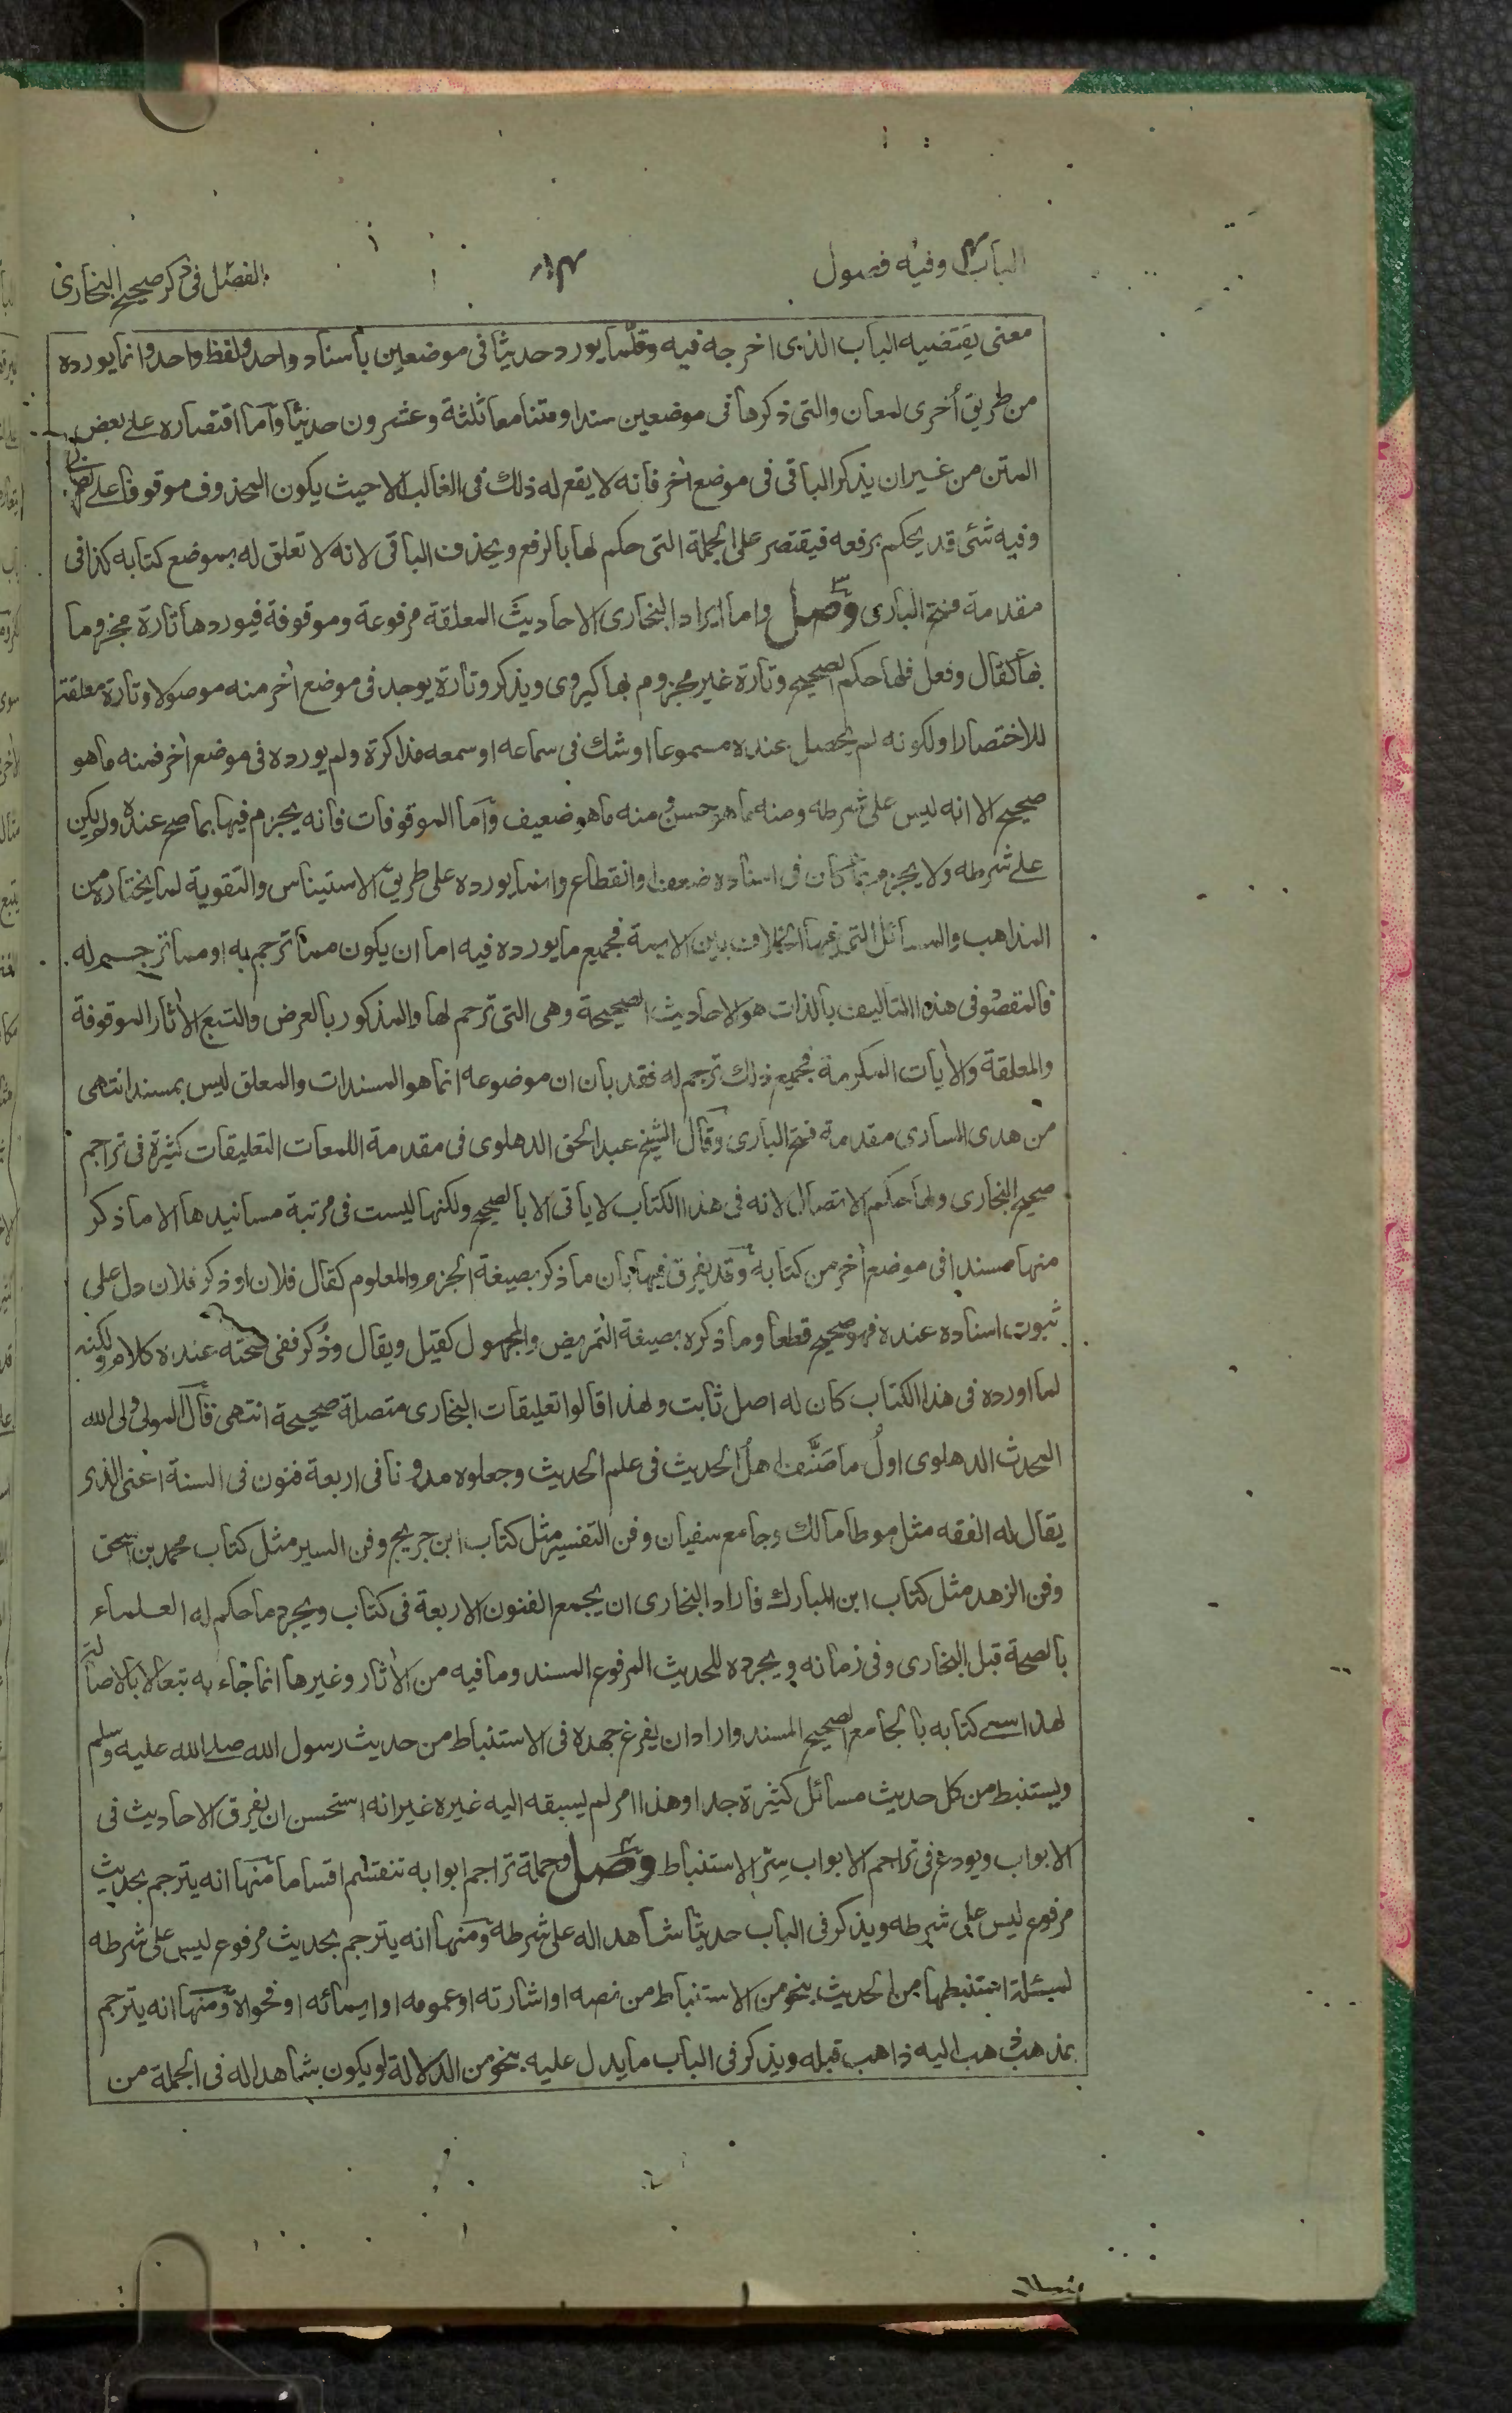 الباب٤ وفيه فصول
١٠٤
الفصل في ذكر صحيح البخاري
معنى يقتضيه الباب الذي اخرجه فيه وقلّما يورد حديثا في موضعين باسناد واحد ولفظ واحد وانما يورده
من طريق أخرى لمعان والتي ذكرها في موضعين سندا ومتنا معا ثلثة وعشرون حديثا وأما اقتصاره على بعض
المتن من غير ان يذكر الباقي في موضع اٰخر فانه لا يقع له ذلك في الغالب الا حيث يكون المحذوف موقوفا على الصحابي
وفيه شئ قد يحكم برفعه فيقتصر على الجملة التي حكم لها بالرفع ويحذف الباقي لانه لا تعلق له بموضع كتابه كذا في
مقدمة فتح الباري وصل واما ايراد البخاري الاحاديث المعلقة مرفوعة وموقوفة فيوردها تارة مجزوما
بها كقال وفعل فلها حكم الصحيح وتارة غير مجزوم بها كيروى ويذكر وتارة يوجد في موضع اٰخر منه موصولا وتارة معلقة
للاختصار او لكونه لم يحصل عنده مسموعا او شك في سماعه او سمعه مذاكرة ولم يورده في موضع اٰخر فمنه ما هو
صحيح الا انه ليس على شرطه ومنه ما هو حسن ومنه ما هو ضعيف وأما الموقوفات فانه يجزم فيها بما صح عنده ولو لم يكن
على شرطه ولا يجزم بما كان في اسناده ضعف او انقطاع وانما يورده على طريق الاستيناس والتقوية لما يختاره من
المذاهب والمسائل التي فيها الخلاف بين الائمة فجميع ما يورده فيه اما ان يكون مما ترجم به او مما ترجم له
فالمقصود في هذا التاليف بالذات هو الاحاديث الصحيحة وهي التي ترجم لها والمذكور بالعرض والتبع الاٰثار الموقوفة
والمعلقة والاٰيات المكرمة فجميع ذلك ترجم له فقد بان ان موضوعه انما هو المسندات والمعلق ليس بمسند انتهى
من هدى الساري مقدمة فتح الباري وقال الشيخ عبد الحق الدهلوي في مقدمة اللمعات التعليقات كثيرة في تراجم
صحيح البخاري ولها حكم الاتصال لانه في هذا الكتاب لا ياتي الا بالصحيح ولكنها ليست في مرتبة مسانيدها الا ما ذكر
منها مسندا في موضع اٰخر من كتابه وقد يفرق فيها بان ما ذكر بصيغة الجزم والمعلوم كقال فلان او ذكر فلان دل على
ثبوت اسناده عنده فهو صحيح قطعا وما ذكره بصيغة التمريض والمجهول كقيل ويقال وذُكر ففي صحته عنده كلام ولكنه
لما اورده في هذا الكتاب كان له اصل ثابت ولهذا قالوا تعليقات البخاري متصلة صحيحة انتهى قال المولى ولي الله
المحدث الدهلوي اولُ ما صَنَّف اهلُ الحديث في علم الحديث وجعلوه مدونا في اربعة فنون في السنة اعني الذي
يقال له الفقه مثل موطا مالك وجامع سفيان وفن التفسير مثل كتاب ابن جريج وفن السير مثل كتاب محمد بن اسحق
وفن الزهد مثل كتاب ابن المبارك فاراد البخاري ان يجمع الفنون الاربعة في كتاب ويجرد ما حكم له العلماء
بالصحة قبل البخاري وفي زمانه ويجرده للحديث المرفوع المسند وما فيه من الاٰثار وغيرها انما جاء به تبعا لا بالاصالة
لهذا سمى كتابه بالجامع الصحيح المسند واراد ان يفرغ جهده في الاستنباط من حديث رسول الله صلى الله عليه وسلم
ويستنبط من كل حديث مسائل كثيرة جدا وهذا امر لم يسبقه اليه غيره غير انه استحسن ان يفرق الاحاديث في
الابواب ويودع في تراجم الابواب سرّ الاستنباط وصل وجملة تراجم ابوابه تنقسم اقساما منها انه يترجم بحديث
مرفوع ليس على شرطه ويذكر في الباب حديثا شاهدا له على شرطه ومنها انه يترجم بحديث مرفوع ليس على شرطه
لمسئلة استنبطها من الحديث بنحو من الاستنباط من نصه او اشارته او عمومه او ايمائه او فحواه ومنها انه يترجم
بمذهب ذهب اليه ذاهب قبله ويذكر في الباب ما يدل عليه بنحو من الدلالة لو يكون شاهدا له في الجملة من